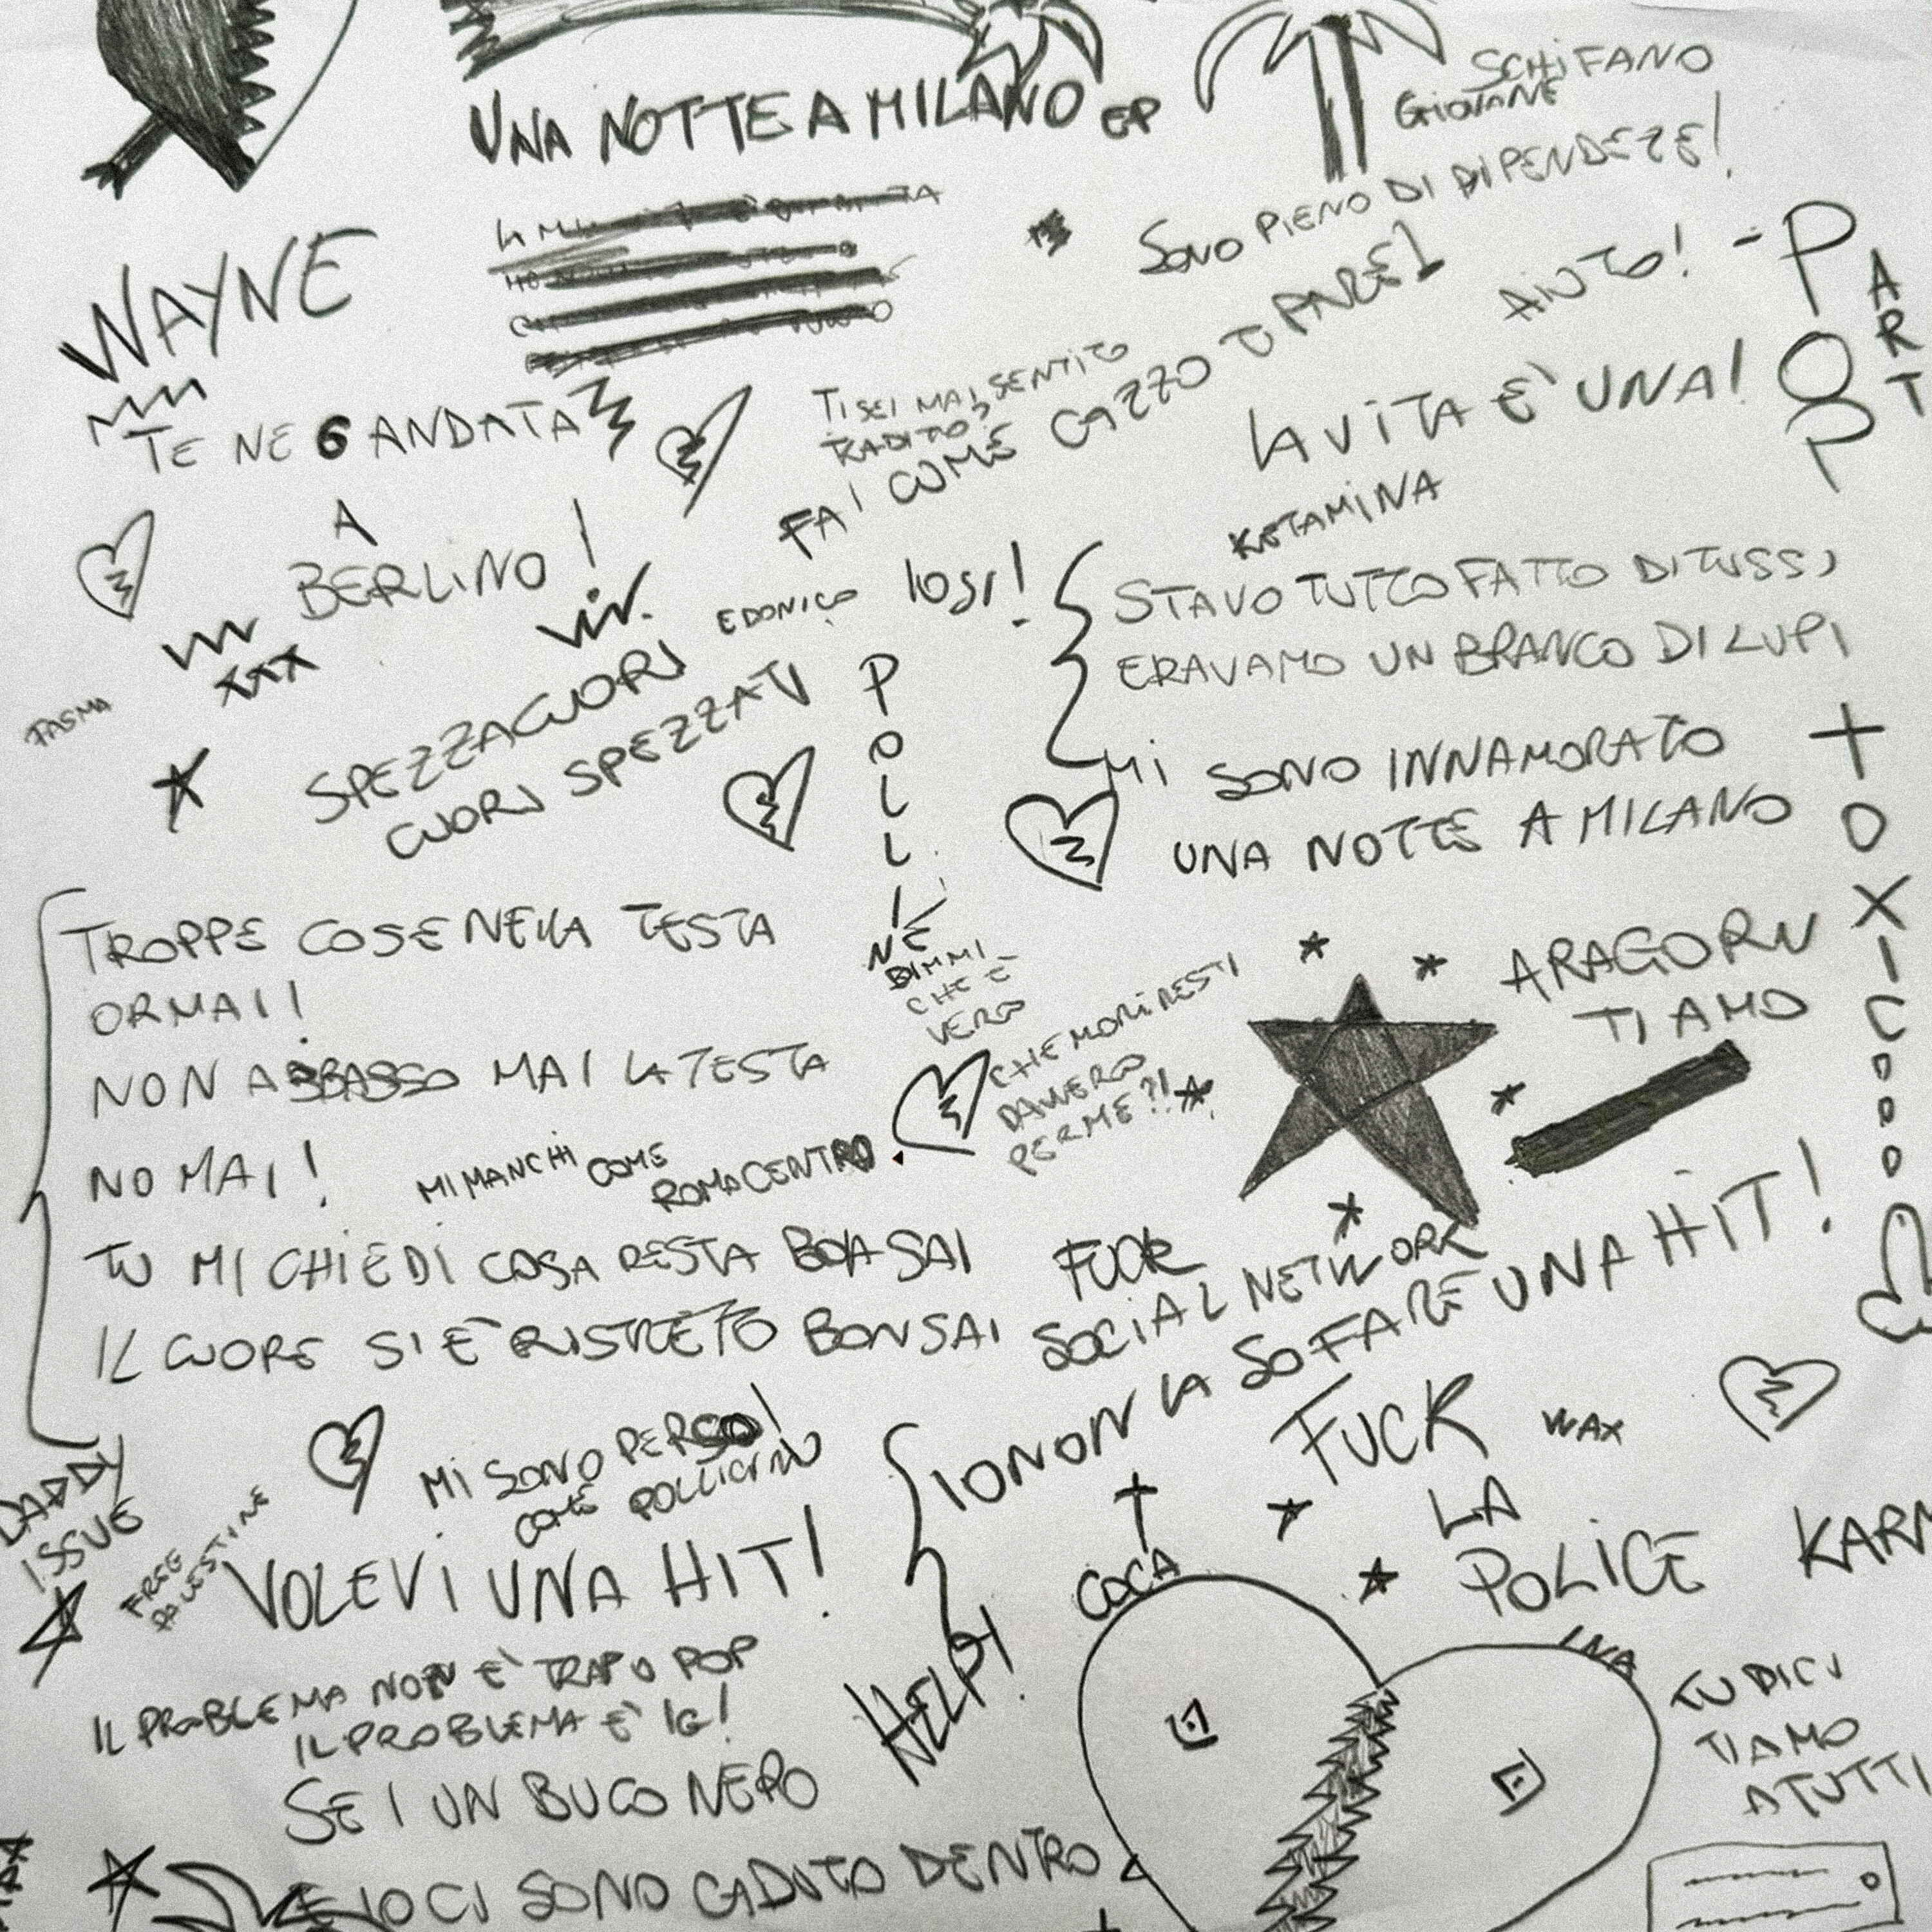 UNA NOTTE A MILANO EP
SCHIFANO
GIOVANE
SONO PIENO DI DIPENDEZE!
AIUTO! -
POP
ART
WAYNE
TE NE 6 ANDATA
A
BERLINO!
TI SEI MAI SENTITO
TRADITO?
FAI COME CAZZO TI PARE!
LA VITA È UNA!
KETAMINA
STAVO TUTTO FATTO DI TUSSI
ERAVAMO UN BRANCO DI LUPI
MI SONO INNAMORATO
UNA NOTTE A MILANO
vir.
EDONICO
XXX
FASMA
SPEZZACUORI
CUORI SPEZZATI
POLLINE
DIMMI
CHE È
VERO
CHE MORIRESTI
DAVVERO
PER ME?!
TROPPE COSE NELLA TESTA
ORMAI!
NON ABBASSO MAI LA TESTA
NO MAI!
MI MANCHI COME
ROMA CENTRO
TU MI CHIEDI COSA RESTA BOH SAI
IL CUORE SI È RISTRETTO BONSAI
ARAGORN
TI AMO
TOXIC
FUCK
SOCIAL NETWORK
IO NON LA SO FARE UNA HIT!
FUCK
LA
POLICE
WAX
DADDY
ISSUE
FREE
PALESTINE
MI SONO PERSO!
COME POLLICINO
VOLEVI UNA HIT!
IL PROBLEMA NON È TRAP O POP
IL PROBLEMA È IG!
SEI UN BUCO NERO
E IO CI SONO CADUTO DENTRO
HELP!
COCA
INA
TU DICI
TI AMO
A TUTTI